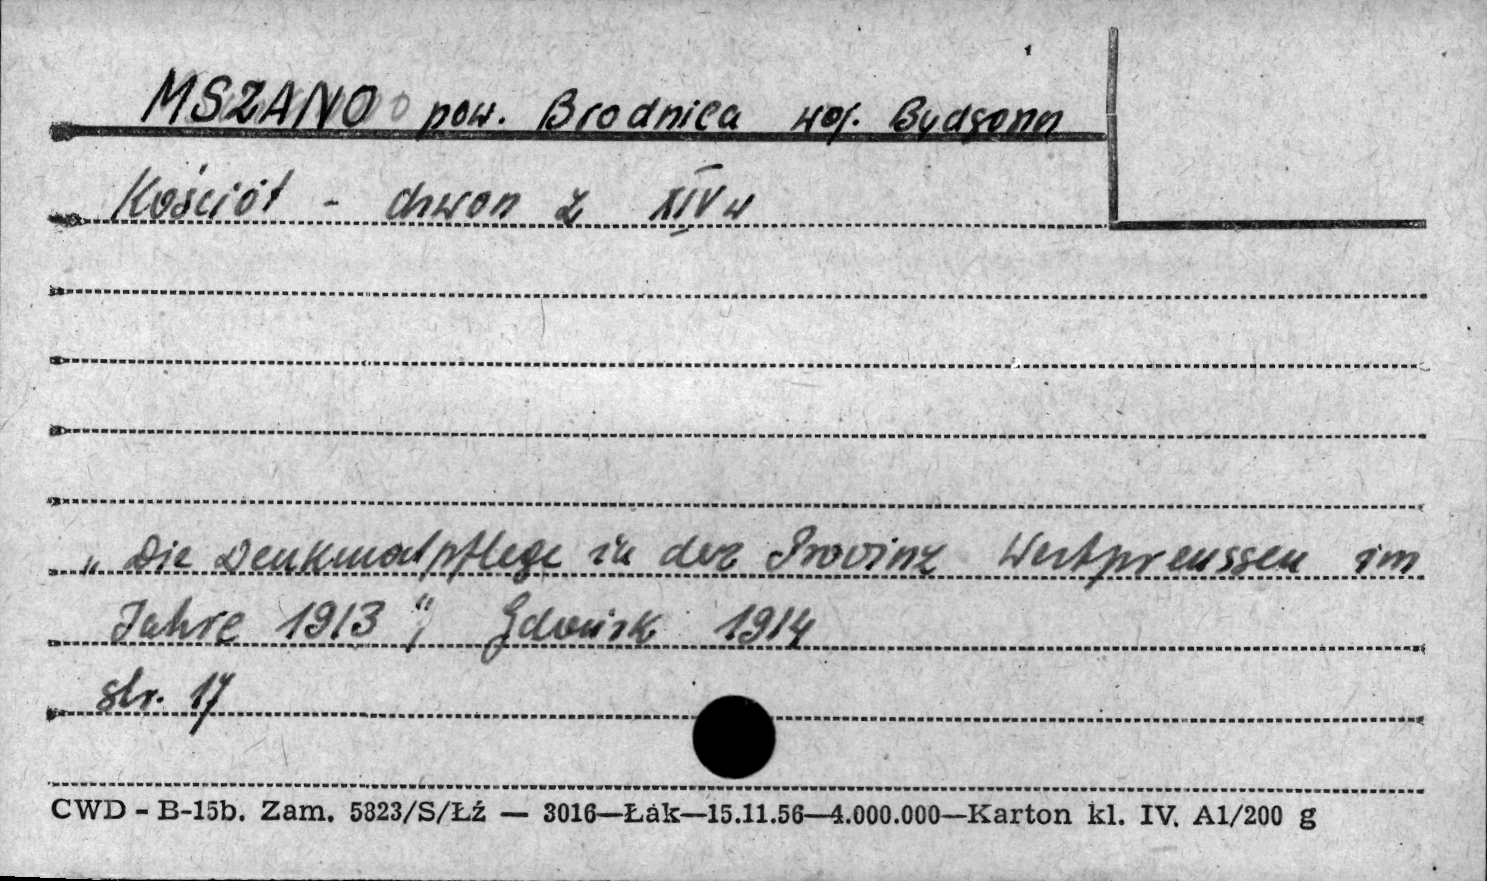 MSZANO pow. Brodnica woj. Bydgoszcz
Kościół - dzwon z XIV w
„Die Denkmalpflege in der Provinz Westpreussen im
Jahre 1913", Gdańsk 1914
str. 17
CWD - B-15b. Zam. 5823/S/Łź — 3016—Łák—15.11.56—4.000.000—Karton kl. IV. A1/200 g